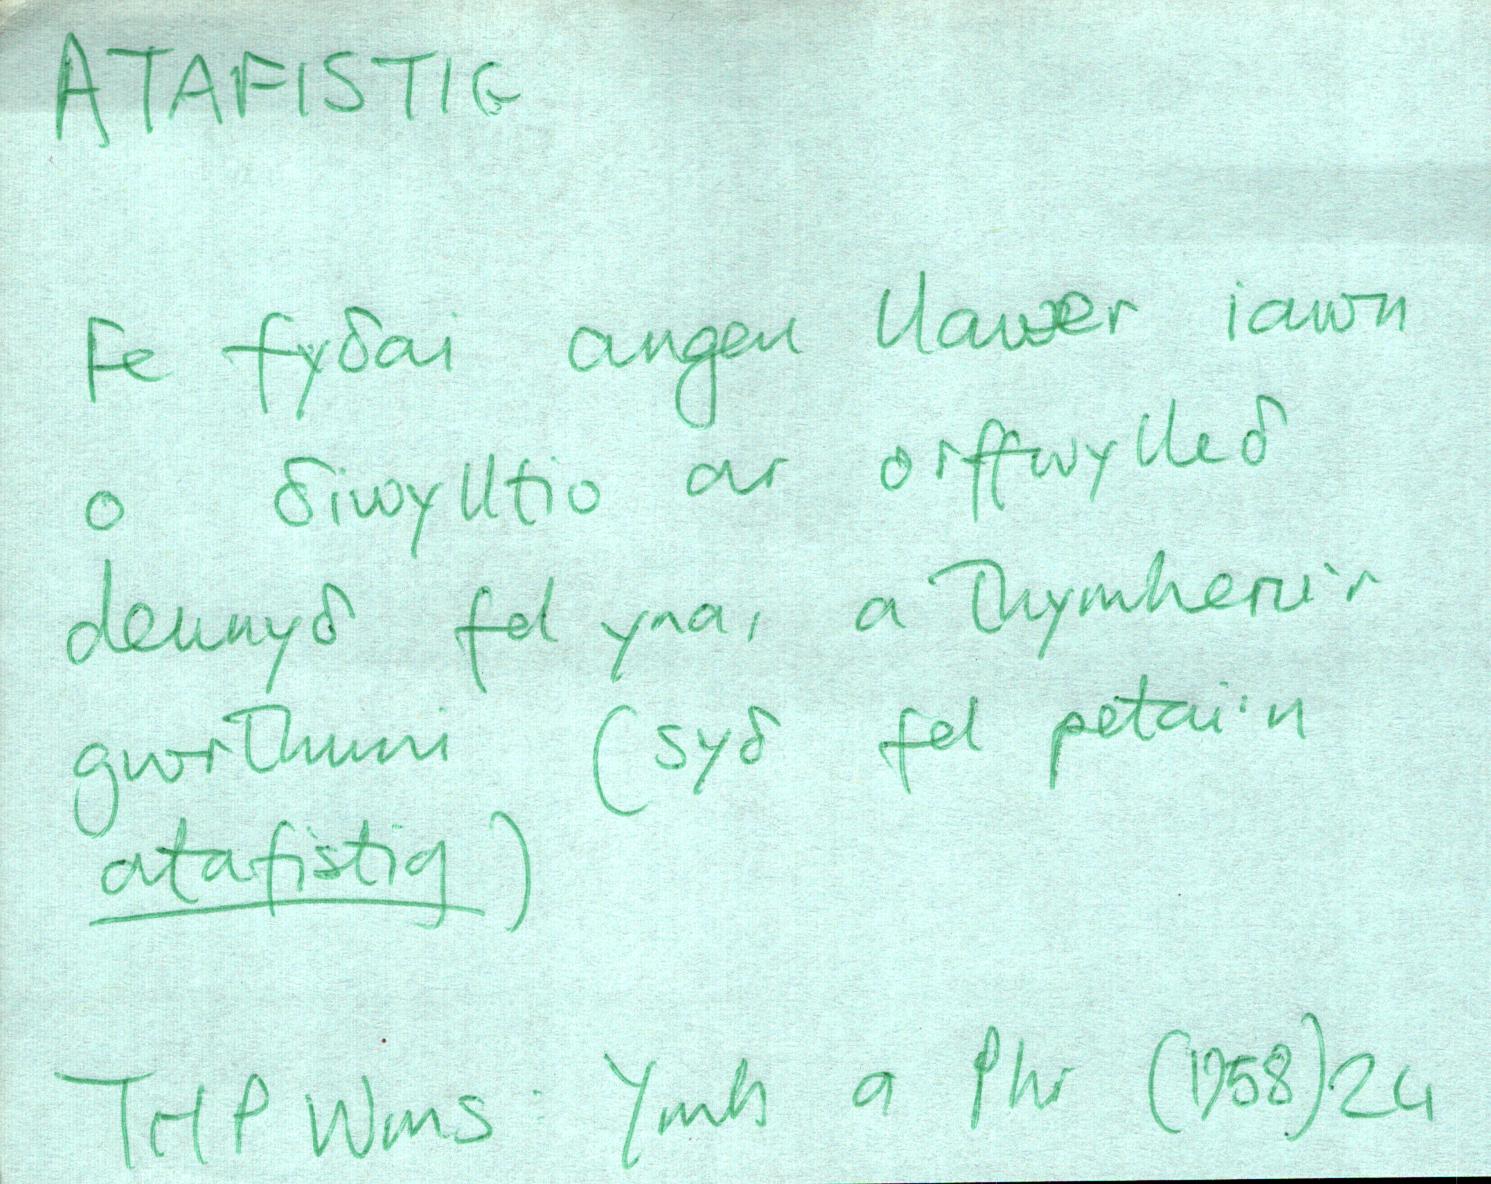 ATAFISTIG
Fe fyδai angen llawer iawn
o δiwylltio ar orffwylleδ
dennyδ fel yna, a thymheru'r
gwrthuni (syδ fel petai'n
atafistig)
THP Wms: Ymh a Phr (1958) 24